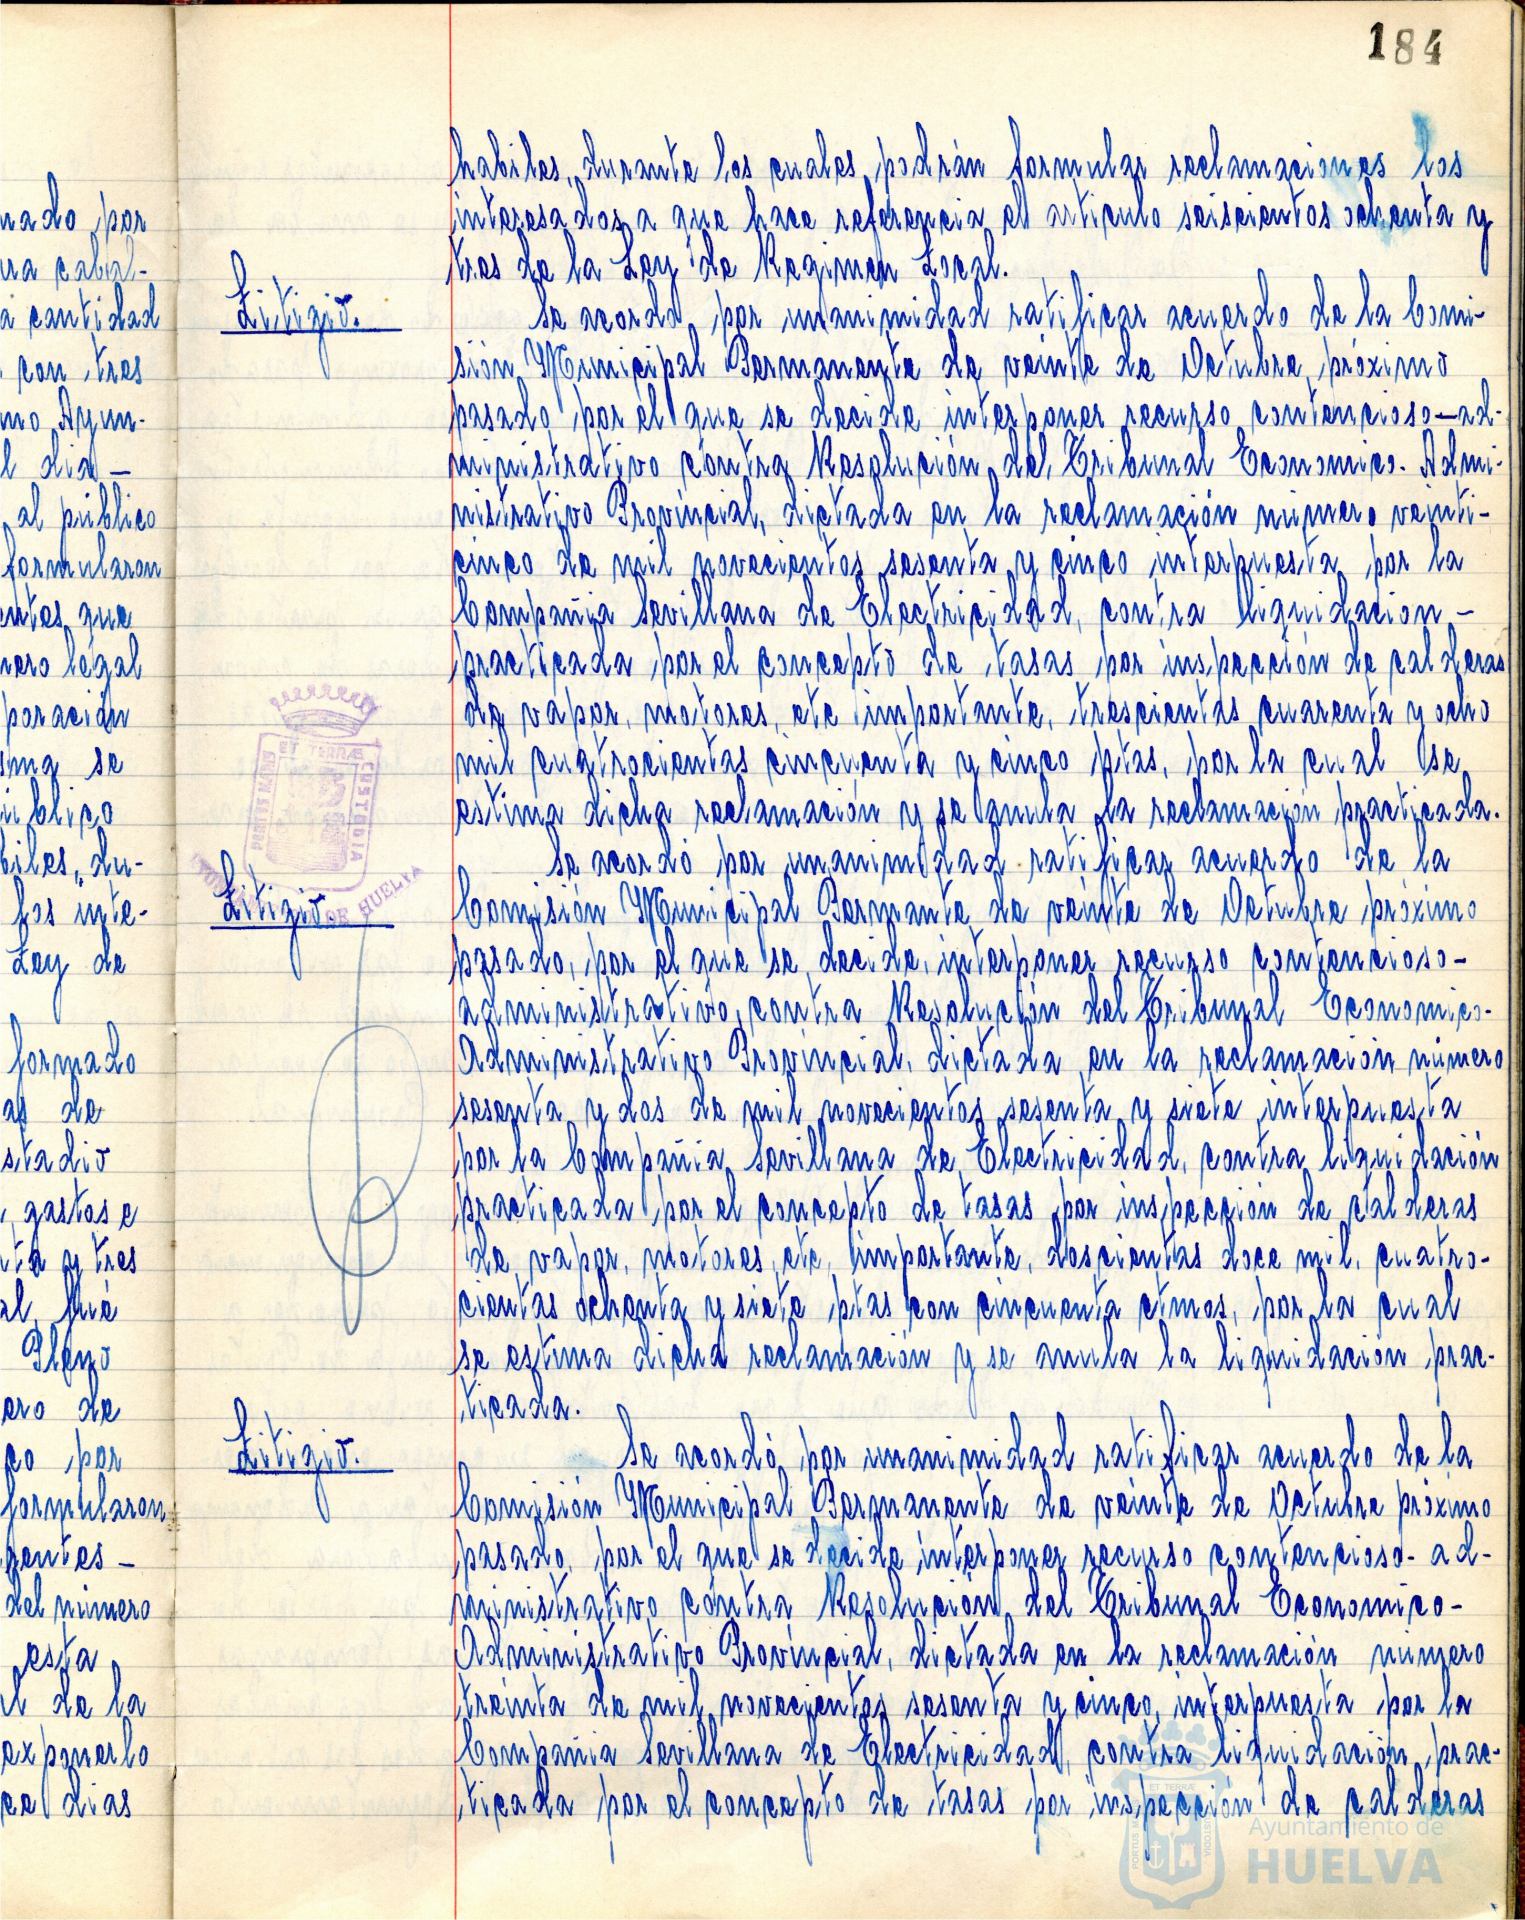 184
nado por
ura cabal-
a cantidad
con tres
mo Ayun-
l dia -
al público
formularon
entes que
nero légal
poración
sma se
úblico
biles, du-
los inte-
Ley de
formado
as de
stadio
, gastos e
nta y tres
al fué
Pleno
ero de
co por
formularon
gentes -
del número
esta
l de la
exponerlo
ce dias
habiles, durante los cuales podrán formular reclamaciones los
interesados a que hace referencia el articulo seiscientos ochenta y
tres de la Ley de Regimen Local.
Litigio.
Se acordó por unanimidad ratificar acuerdo de la Comi-
sión Municipal Permanente de veinte de Octubre próximo
pasado por el que se decide interponer recurso contencioso-ad-
ministrativo contra Resolución del Tribunal Economico-Admi-
nistrativo Provincial, dictada en la reclamación número veinti-
cinco de mil novecientos sesenta y cinco interpuesta por la
Compañia Sevillana de Electricidad, contra liquidacion -
practicada por el concepto de tasas por inspección de calderas
de vapor, motores, etc importante, trescientas cuarenta y ocho
mil cuatrocientas cincuenta y cinco ptas, por la cual se
estima dicha reclamación y se anula la reclamación practicada.
Litigio.
Se acordó por unanimidad ratificar acuerdo de la
Comisión Municipal Permante de veinte de Octubre próximo
pasado, por el que se decide, interponer recurso contencioso-
administrativo, contra Resolución del Tribunal Economico-
Administrativo Provincial, dictada en la reclamación número
sesenta y dos de mil novecientos sesenta y siete interpuesta
por la Compañia Sevillana de Electricidad, contra liquidación
practicada por el concepto de tasas por inspección de calderas
de vapor, motores, etc, importante, doscientas doce mil, cuatro-
cientas ochenta y siete ptas con cincuenta ctmos, por la cual
se estima dicha reclamación y se anula la liquidación prac-
ticada.
Litigio.
Se acordó por unanimidad ratificar acuerdo de la
Comisión Municipal Permanente de veinte de Octubre próximo
pasado, por el que se decide interponer recurso contencioso-ad-
ministrativo contra Resolución del Tribunal Economico-
Administrativo Provincial, dictada en la reclamación número
treinta de mil novecientos sesenta y cinco, interpuesta por la
Compañia Sevillana de Electricidad, contra liquidación prac-
ticada por el concepto de tasas por inspección de calderas
PORTUS MARIS ET TERRAE CUSTODIA
DE HUELVA
ET TERRAE
Ayuntamiento de
HUELVA